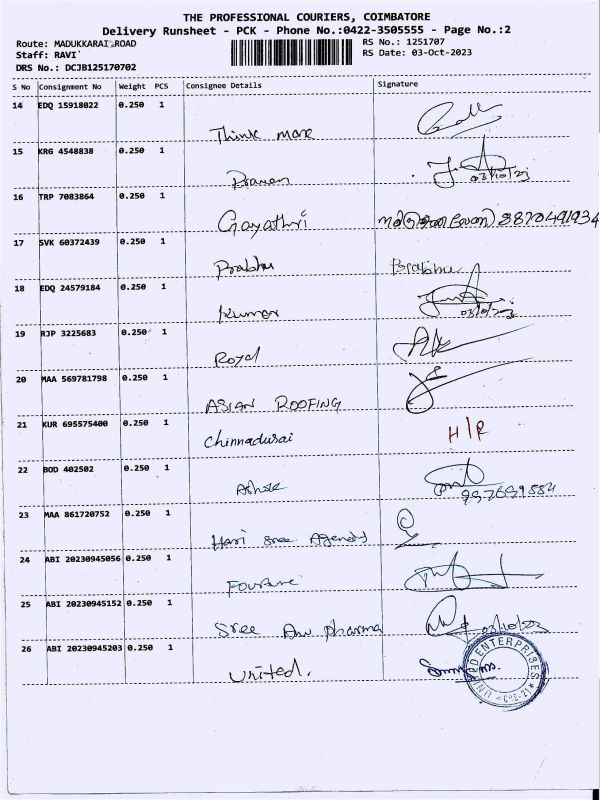 THE PROFESSIONAL COURIERS, COIMBATORE
Delivery Runsheet - PCK - Phone No.:0422-3505555 - Page No.:2
Route: MADUKKARAI ROAD RS No.: 1251707
Staff: RAVI RS Date: 03-Oct-2023
DRS No.: DCJB125170702
S No Consignment No Weight PCS Consignee Details Signature
14 EDQ 15918022 0.250 1
Think max
15 KRG 4548838 0.250 1
Praven 03/10/23
16 TRP 7083864 0.250 1
Gayathri
17 SVK 60372439 0.250 1
Prabhu Prabhu
18 EDQ 24579184 0.250 1
Kumar 03/10/23
19 RJP 3225683 0.250 1
Royal
20 MAA 569781798 0.250 1
ASIAN ROOFING
21 KUR 695575400 0.250 1
Chinnadurai H/R
22 BOD 402502 0.250 1
Ashok
23 MAA 861720752 0.250 1
Hari Sree Agency
24 ABI 20230945056 0.250 1
Fourtune
25 ABI 20230945152 0.250 1
Sree Anu pharma 03/10/23
26 ABI 20230945203 0.250 1
United.
UNITED ENTERPRISES
CBE-21